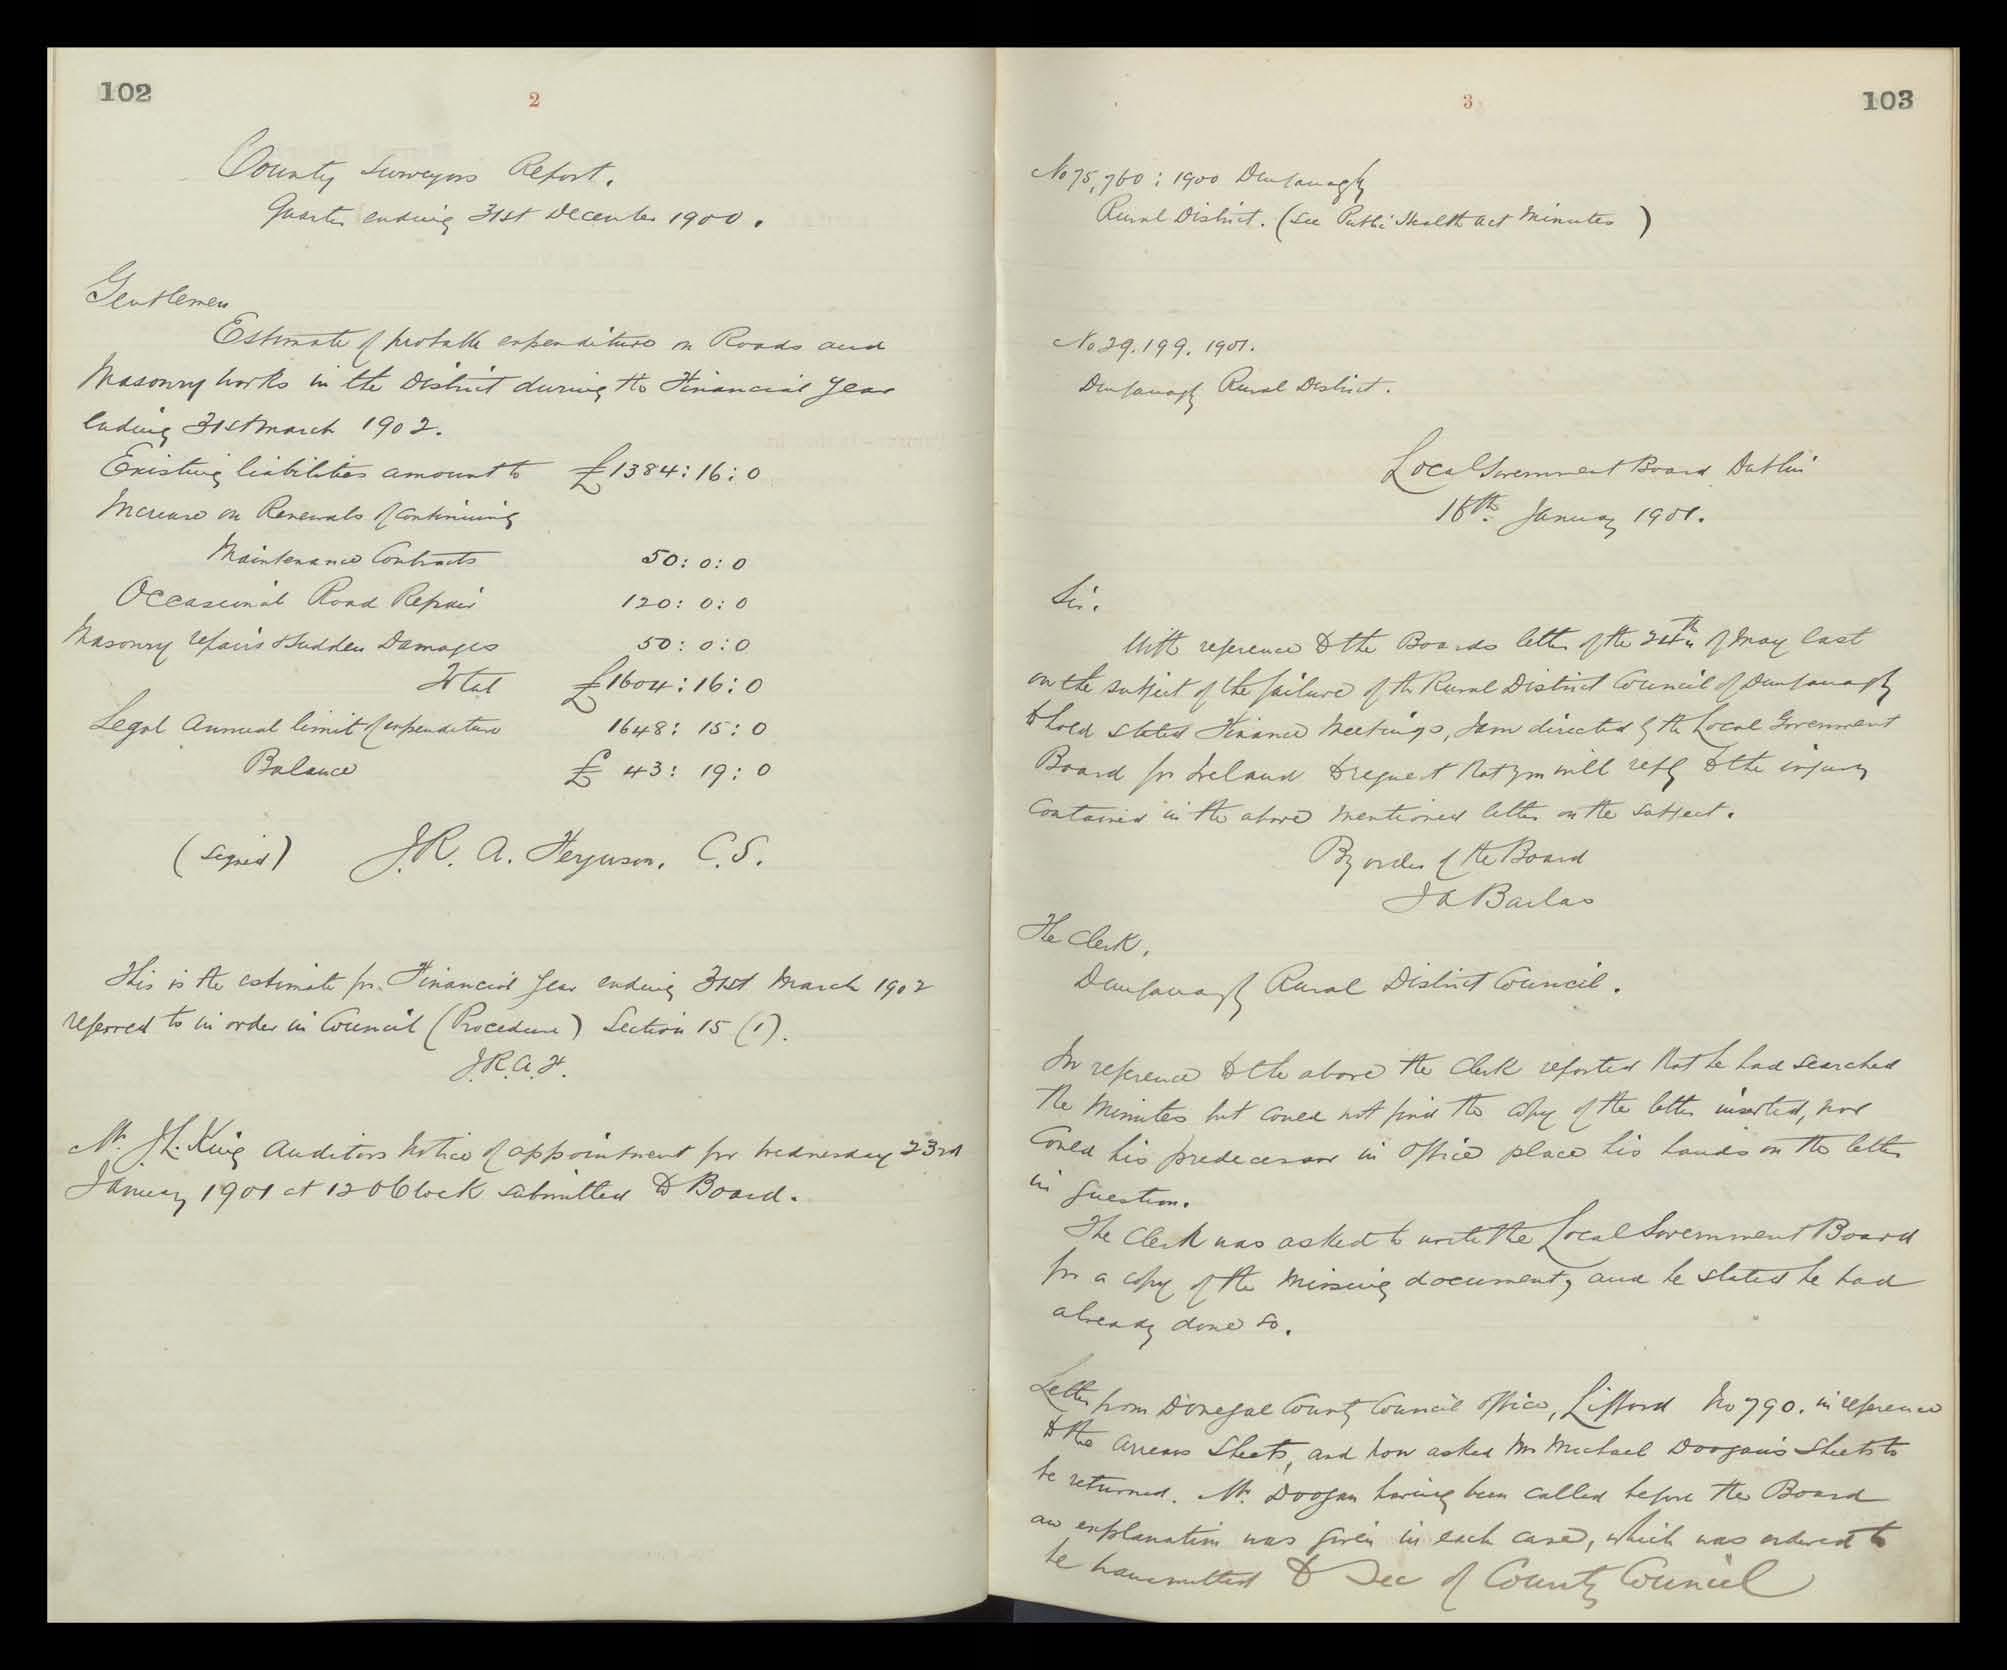 102
2
County Surveyors Report.
Quarter ending 31st December 1900.
Gentlemen
Estimate of probable expenditure on Roads and
Masonry works in the District during the Financial Year
ending 31st March 1902.
Existing liabilities amount to £1384:16:0
Increase on Renewals of Continuing
Maintenance Contracts 50:0:0
Occasional Road Repair 120:0:0
Masonry repairs & Sudden Damages 50:0:0
Total £1604:16:0
Legal Annual limit of expenditure 1648:15:0
Balance £43:19:0
(Signed) J.R.A. Ferguson. C.S.
This is the estimate for Financial Year ending 31st March 1902
referred to in order in Council (Procedure) Section 15 (1).
J.R.A.F.
Mr. J.L. King Auditors Notice of appointment for Wednesday 23rd
January 1901 at 12 O'Clock submitted to Board.
3
103
No 75,760: 1900 Dunfanaghy
Rural District. (See Public Health Act Minutes)
No 29.199.1901.
Dunfanaghy Rural District.
Local Government Board Dublin
18th January 1901.
Sir.
With reference to the Boards letter of the 24th of May last
on the subject of the failure of the Rural District Council of Dunfanaghy
to hold stated Finance Meetings, I am directed by the Local Government
Board for Ireland to request that you will reply to the inquiry
contained in the above mentioned letter on the subject.
By order of the Board
J A Barlas
The Clerk,
Dunfanaghy Rural District Council.
In reference to the above the Clerk reported that he had searched
the Minutes but could not find the copy of the letter inserted, nor
Could his predecessor in Office place his hands on the letter
in question.
The Clerk was asked to write the Local Government Board
for a copy of the missing document, and he stated he had
already done so.
Letter from Donegal County Council Office, Lifford No 790. in reference
to the Arrears Sheets, and now asked Mr Michael Doogan's Sheets to
be returned. Mr. Doogan having been called before the Board
an explanation was given in each case, which was ordered to
be transmitted to Sec of County Council